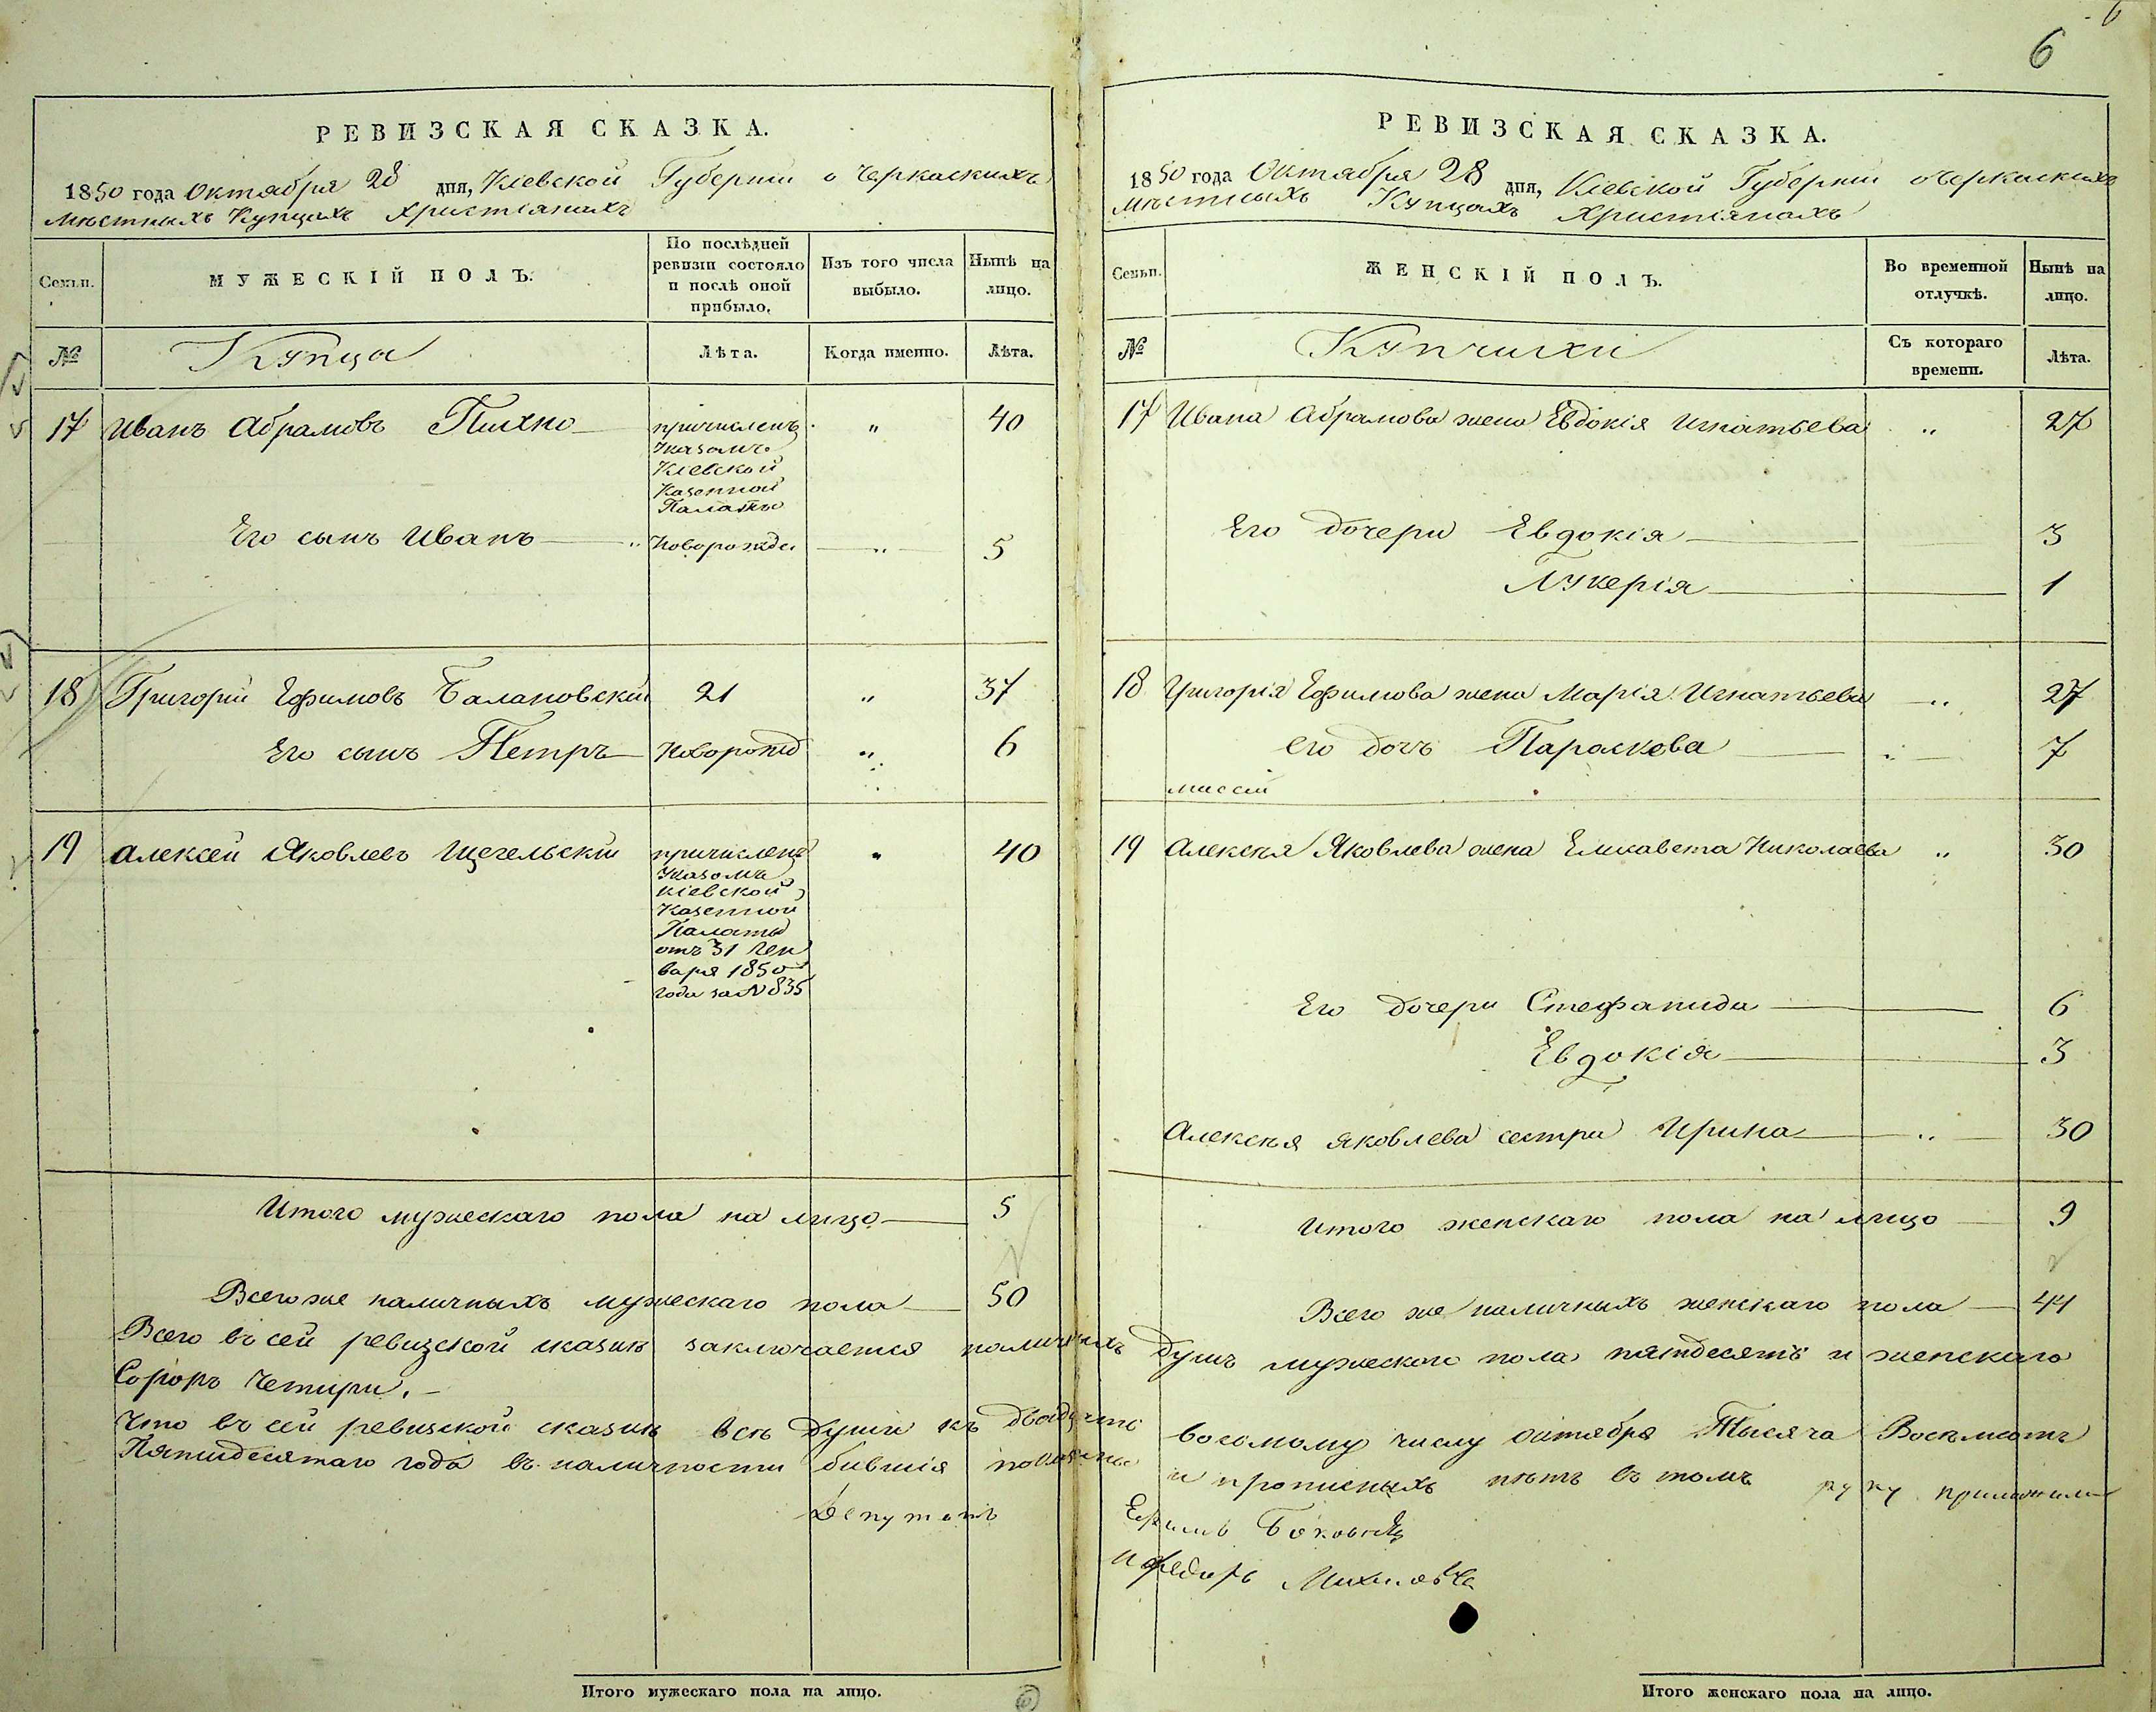 6
6
РЕВИЗСКАЯ СКАЗКА.
1850 года Октября 28 дня, Кіевской Губерніи о Черкаскихъ
мѣстныхъ Купцахъ Христіанахъ
Семьи.
МУЖЕСКІЙ ПОЛЪ.
По послѣдней
ревизіи состояло
и послѣ оной
прибыло.
Изъ того числа
выбыло.
Нынѣ на
лицо.
№
Купца
Лѣта.
Когда именно.
Лѣта.
17 Иванъ Абрамовъ Пихно причисленъ " 40
Указомъ
Кіевской
Казенной
Палаты
Его сынъ Иванъ новорожде. " 5
18 Григорій Ефимовъ Балановскій 21 " 37
Его сынъ Петръ новорожд " 6
19 Алексей Яковлевъ Щегельскій причисленъ " 40
Указомъ
Кіевской
Казенной
Палаты
отъ 31 Ген
варя 1850
года за № 835
Итого мужескаго пола на лицо 5
Всего же наличныхъ мужескаго пола 50
РЕВИЗСКАЯ СКАЗКА.
1850 года Октября 28 дня, Кіевской Губерніи о Черкаскихъ
мѣстныхъ Купцахъ Христіанахъ
Семьи.
ЖЕНСКІЙ ПОЛЪ.
Во временной
отлучкѣ.
Нынѣ на
лицо.
№
Купчихи
Съ котораго
времени.
Лѣта.
17 Ивана Абрамова жена Евдокія Игнатьева " 27
Его дочери Евдокія 3
Лукерія 1
18 Григорія Ефимова жена Марія Игнатьева " 27
его дочь Параскева " 7
19 Алексѣя Яковлева жена Елисавета Николаева " 30
Его дочери Стефанида 6
Евдокія 3
Алексѣя Яковлева сестра Ирина " 30
Итого женскаго пола на лицо 9
Всего же наличныхъ женскаго пола 44
Всего въ сей ревизской сказкѣ заключается наличныхъ душъ мужескаго пола пятдесятъ и женскаго
Сорокъ Четыри.
Что въ сей ревизской сказкѣ всѣ души къ двадцать восьмому числу октября Тысяча Восемьсотъ
Пятидесятаго года въ наличности бывшія показаны и прописныхъ нѣтъ въ томъ руку приложили
Депутатъ Ефимъ
и Федоръ
Итого мужескаго пола на лицо.
Итого женскаго пола на лицо.